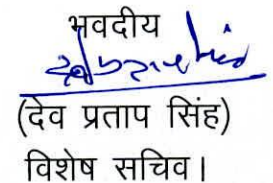 भवदीय
(देव प्रताप सिंह)
विशेष सचिव।